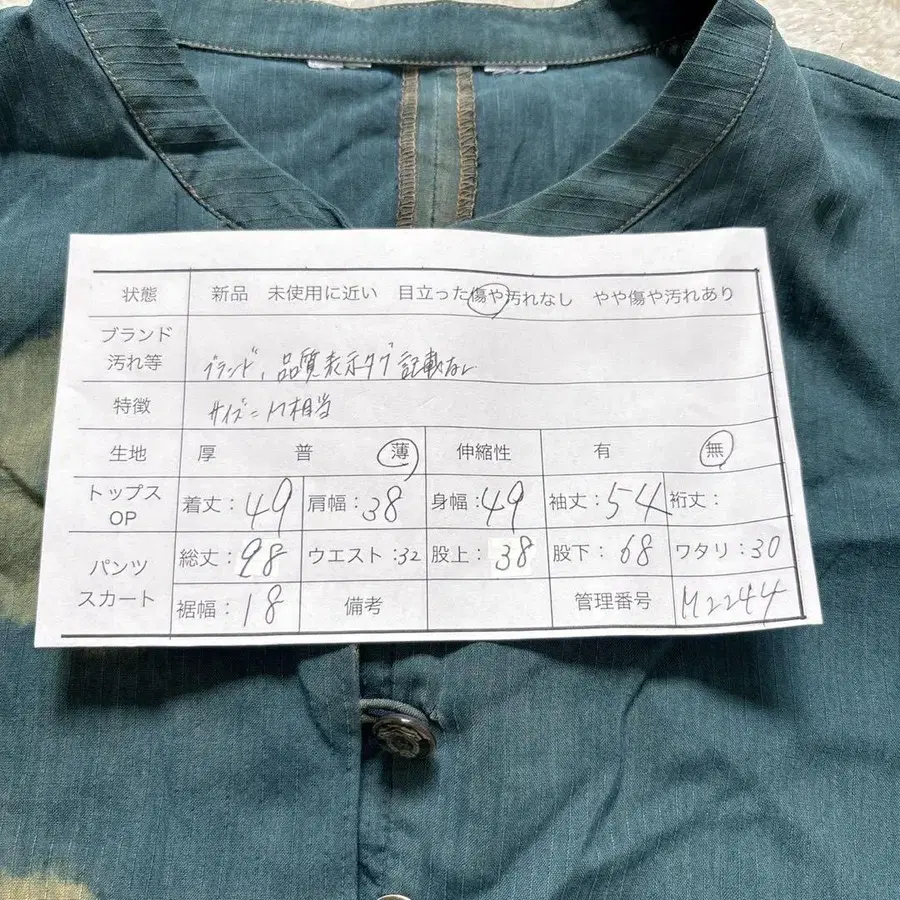 状態 新品 未使用に近い 目立った傷や汚れなし やや傷や汚れあり
ブランド
汚れ等 ブランド、品質表示タグ記載なし
特徴 サイズ=M相当
生地 厚 普 薄 伸縮性 有 無
トップス
OP 着丈:49 肩幅:38 身幅:49 袖丈:54 裄丈:
パンツ
スカート 総丈:98 ウエスト:32 股上:38 股下:68 ワタリ:30
裾幅:18 備考 管理番号 M2244